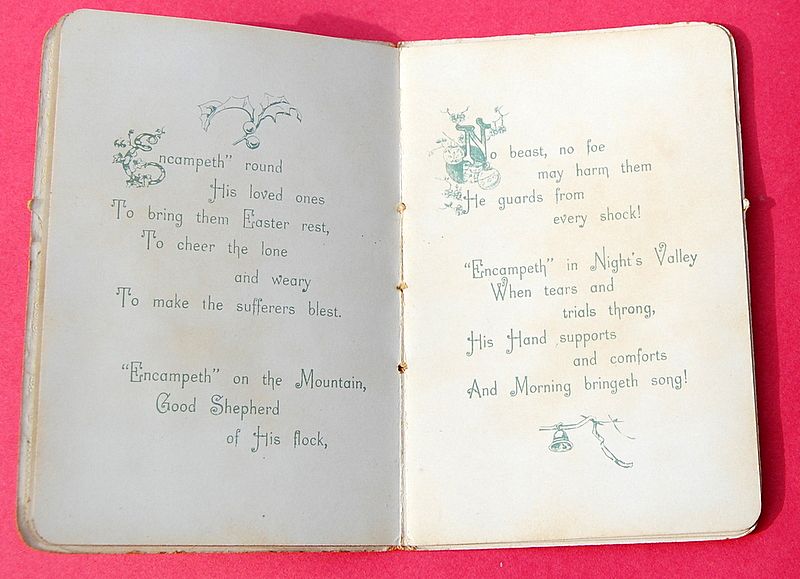 Encampeth" round
His loved ones
To bring them Easter rest,
To cheer the lone
and weary
To make the sufferers blest.
"Encampeth" on the Mountain,
Good Shepherd
of His flock,
No beast, no foe
may harm them
He guards from
every shock!
"Encampeth" in Night's Valley
When tears and
trials throng,
His Hand supports
and comforts
And Morning bringeth song!